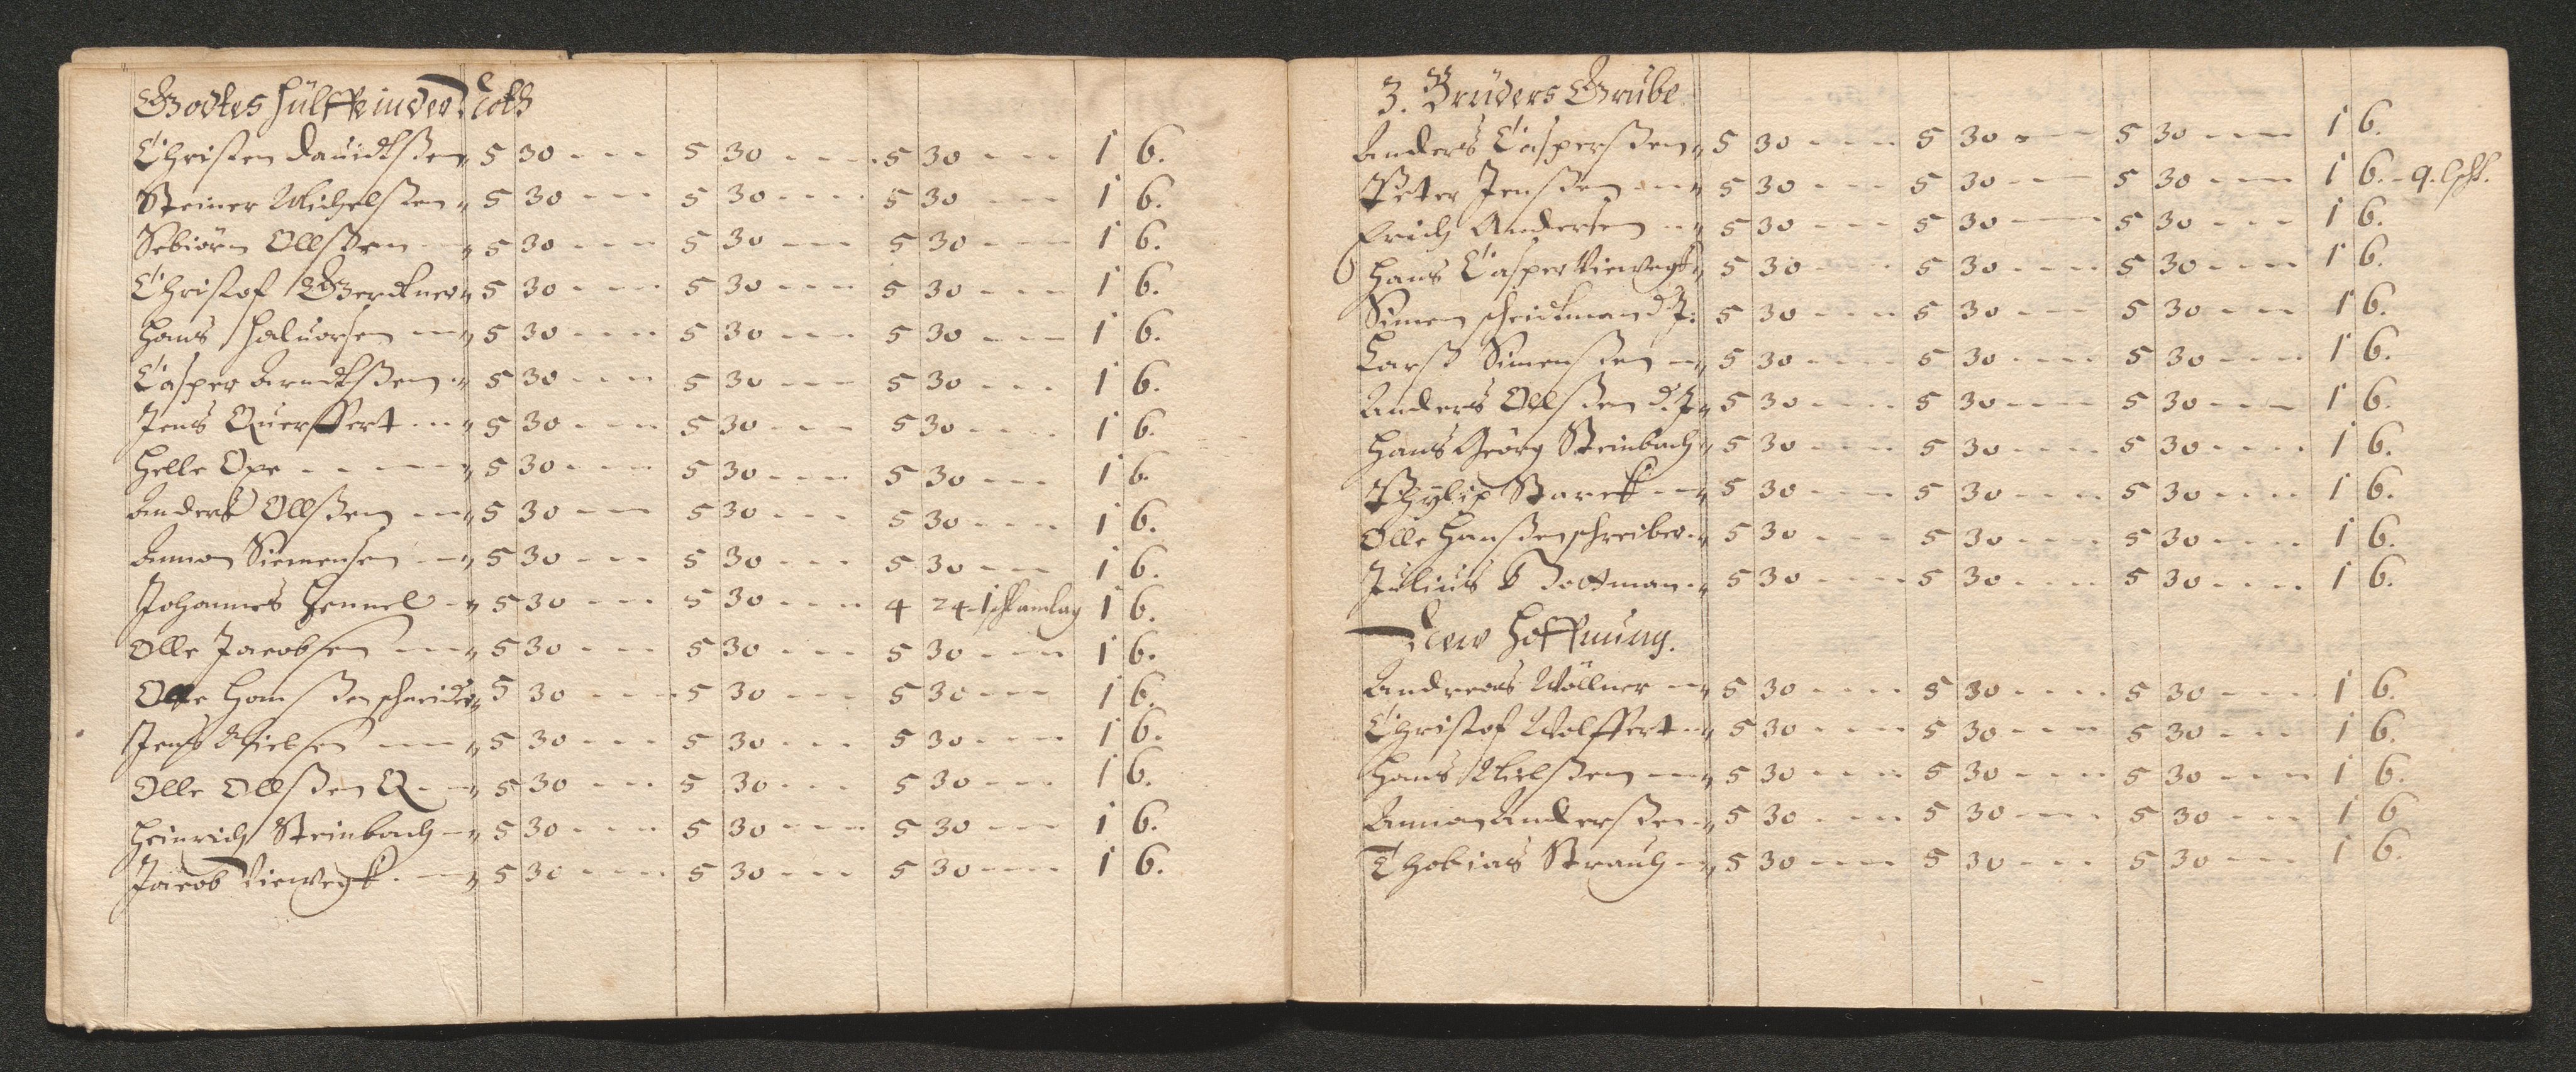 Gottes Hülffe in der Noth
Christen Dauidtsßen 5 30 --- 5 30 --- 5 30 --- 1 6.
Steiner Michelßen 5 30 --- 5 30 --- 5 30 --- 1 6.
Sebiörn Ollsßen 5 30 --- 5 30 --- 5 30 --- 1 6.
Christof Gerdtner 5 30 --- 5 30 --- 5 30 --- 1 6.
Hans Haluorsen 5 30 --- 5 30 --- 5 30 --- 1 6.
Casper Arndtsßen 5 30 --- 5 30 --- 5 30 --- 1 6.
Jens Querffert 5 30 --- 5 30 --- 5 30 --- 1 6.
Helle Oxe 5 30 --- 5 30 --- 5 30 --- 1 6.
Anders Ollsßen 5 30 --- 5 30 --- 5 30 --- 1 6.
Amon Simensen 5 30 --- 5 30 --- 5 30 --- 1 6.
Johannes Hennel 5 30 --- 5 30 --- 4 24 - 1 1 6.
Olle Jacobsen 5 30 --- 5 30 --- 5 30 --- 1 6.
Olle Hansßen schneider 5 30 --- 5 30 --- 5 30 --- 1 6.
Jens Nielsen 5 30 --- 5 30 --- 5 30 --- 1 6.
Olle Ollsßen Q 5 30 --- 5 30 --- 5 30 --- 1 6.
Heinrich Steinbach 5 30 --- 5 30 --- 5 30 --- 1 6.
Jacob Viewegk 5 30 --- 5 30 --- 5 30 --- 1 6.
3. Brüders Grube
Anders Casperßen 5 30 --- 5 30 --- 5 30 --- 1 6.
Peter Jensßen 5 30 --- 5 30 --- 5 30 --- 1 6. - 9.
Erich Andersen 5 30 --- 5 30 --- 5 30 --- 1 6.
Hans Casper Viewegk 5 30 --- 5 30 --- 5 30 --- 1 6.
Simen Scheidtman d. J: 5 30 --- 5 30 --- 5 30 --- 1 6.
Larß Simensßen 5 30 --- 5 30 --- 5 30 --- 1 6.
Anders Ollsßen d. J 5 30 --- 5 30 --- 5 30 --- 1 6.
Hans Georg Steinbach 5 30 --- 5 30 --- 5 30 --- 1 6.
Phylip Starck 5 30 --- 5 30 --- 5 30 --- 1 6.
Olle Hansßen schreiber 5 30 --- 5 30 --- 5 30 --- 1 6.
Julius 5 30 --- 5 30 --- 5 30 --- 1 6.
New Hoffnung.
Andreas Wöllner 5 30 --- 5 30 --- 5 30 --- 1 6.
Christof Wolffert 5 30 --- 5 30 --- 5 30 --- 1 6.
Hans Nielsßen 5 30 --- 5 30 --- 5 30 --- 1 6.
Amon Andersßen 5 30 --- 5 30 --- 5 30 --- 1 6
Thobias Strauch 5 30 --- 5 30 --- 5 30 --- 1 6.